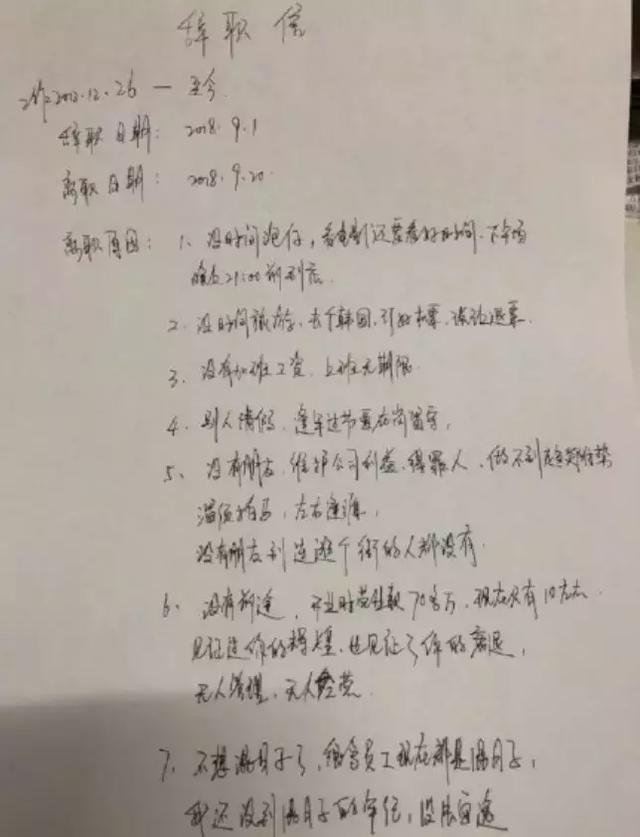 辞职信
工作2012.12.26 — 至今
辞职日期: 2018.9.1
离职日期: 2018.9.20
离职原因: 1、没时间泡仔,看电影还要看好时间、下午场
晚上21:00前到店
2、没时间旅游、去个韩国、订好机票、被迫退票
3、没有加班工资、上班无期限
4、别人请假、逢年过节要在岗留守,
5、没有朋友、维护公司利益、得罪人、做不到
溜须拍马、左右逢源,
没有朋友到连逛个街的人都没有.
6、没有前途,开业时营业款70多万、现在只有10左右
见证过你的辉煌、也见证了你的衰退,
无人管理、无人经营
7、不想混日子了,宿舍员工现在都是混日子,
我还没到混日子的年纪,没法安逸